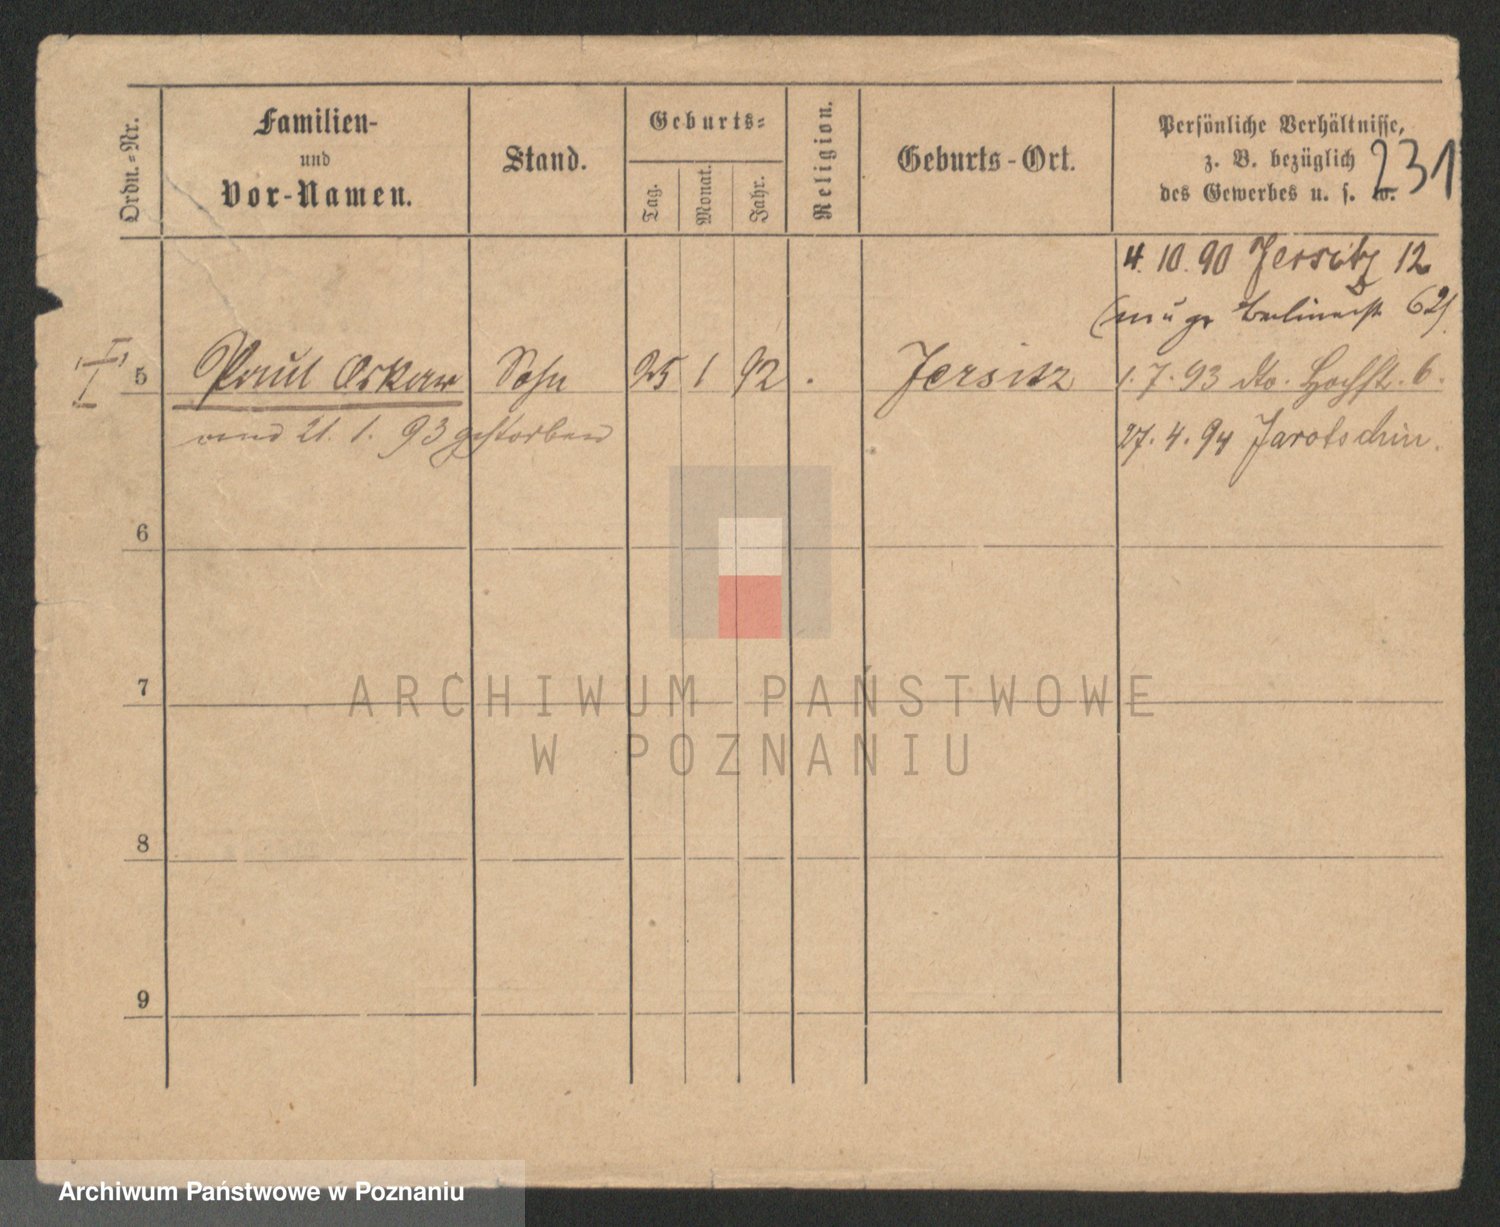 Ordn.-Nr.
Familien-
und
Vor-Namen.
Stand.
Geburts-
Tag.
Monat.
Jahr.
Religion.
Geburts-Ort.
Persönliche Verhältnisse,
z. B. bezüglich
des Gewerbes u. s. w.
231
4. 10. 90 Jersitz 12
Berlinerst 62)
5 Paul Oskar Sohn 25 1 92 . Jersitz 1. 7. 93 dto. Hochst. 6.
21. 1. 93 gestorben 27. 4. 94 Jarotschin.
6
7
8
9
ARCHIWUM PAŃSTWOWE
W POZNANIU
Archiwum Państwowe w Poznaniu